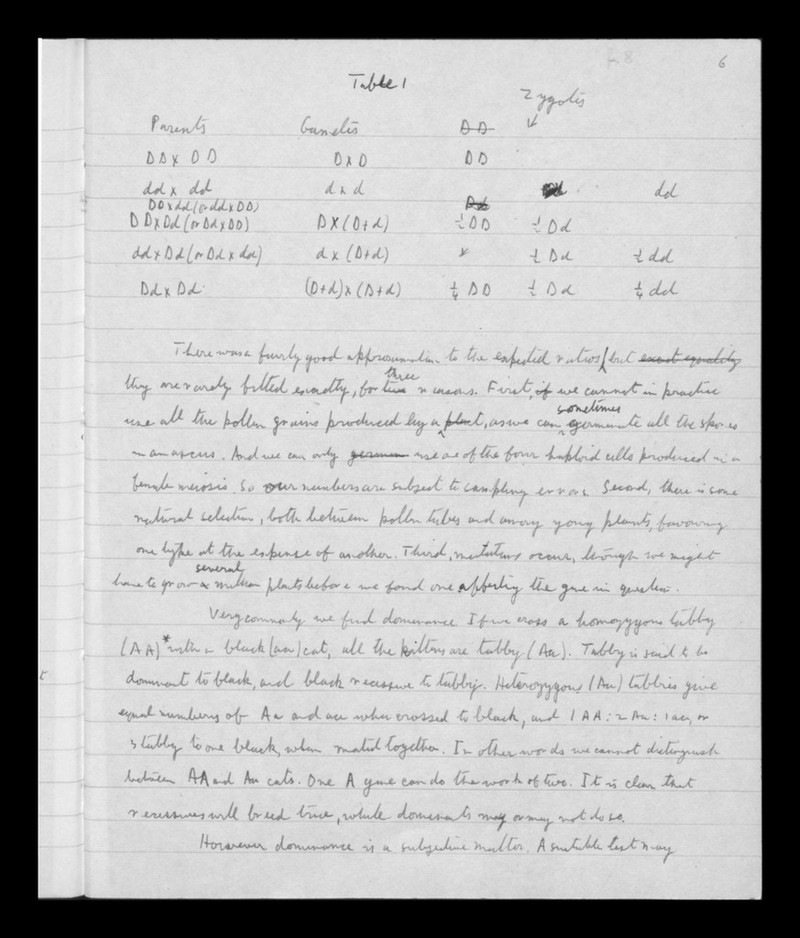 6
Table 1
Zygotes
Parents Gametes DD
DD x DD D x D DD
dd x dd d x d dd
DD x dd (or dd x DD) Dd
DD x Dd (or Dd x DD) D x (D+d) ½ DD ½ Dd
dd x Dd (or Dd x dd) d x (D+d) ½ Dd ½ dd
Dd x Dd (D+d) x (D+d) ¼ DD ½ Dd ¼ dd
There was a fairly good approximation to the expected ratios, but exact equality
three
they are rarely fitted exactly, for two reasons. First, if we cannot in practice
sometimes
use all the pollen grains produced by a plant, as we can germinate all the spores
in an ascus. And we can only use one of the four haploid cells produced in a
female meiosis. So our numbers are subject to sampling errors. Second, there is some
natural selection, both between pollen tubes and among young plants, favouring
one type at the expense of another. Third, mutations occur, though we might
several
have to grow a million plants before we found one affecting the gene in question.
Very commonly we find dominance. If we cross a homozygous tabby
(AA)* with a black (aa) cat, all the kittens are tabby (Aa). Tabby is said to be
dominant to black, and black recessive to tabby. Heterozygous (Aa) tabbies give
equal numbers of Aa and aa when crossed to black, and 1 AA : 2 Aa : 1 aa, or
3 tabby to one black, when mated together. In other words we cannot distinguish
between AA and Aa cats. One A gene can do the work of two. It is clear that
recessives will breed true, while dominants may or may not do so.
However dominance is a subjective matter. A suitable test may